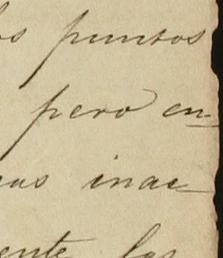 os puntos
pero en-
eas inac-
ente las